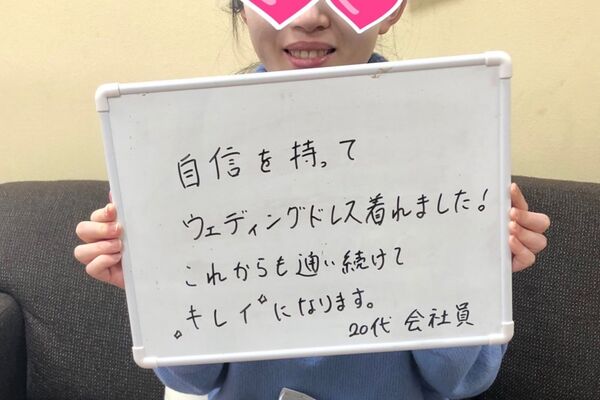 自信を持って
ウェディングドレス着れました!
これからも通い続けて
"キレイ"になります。
20代 会社員